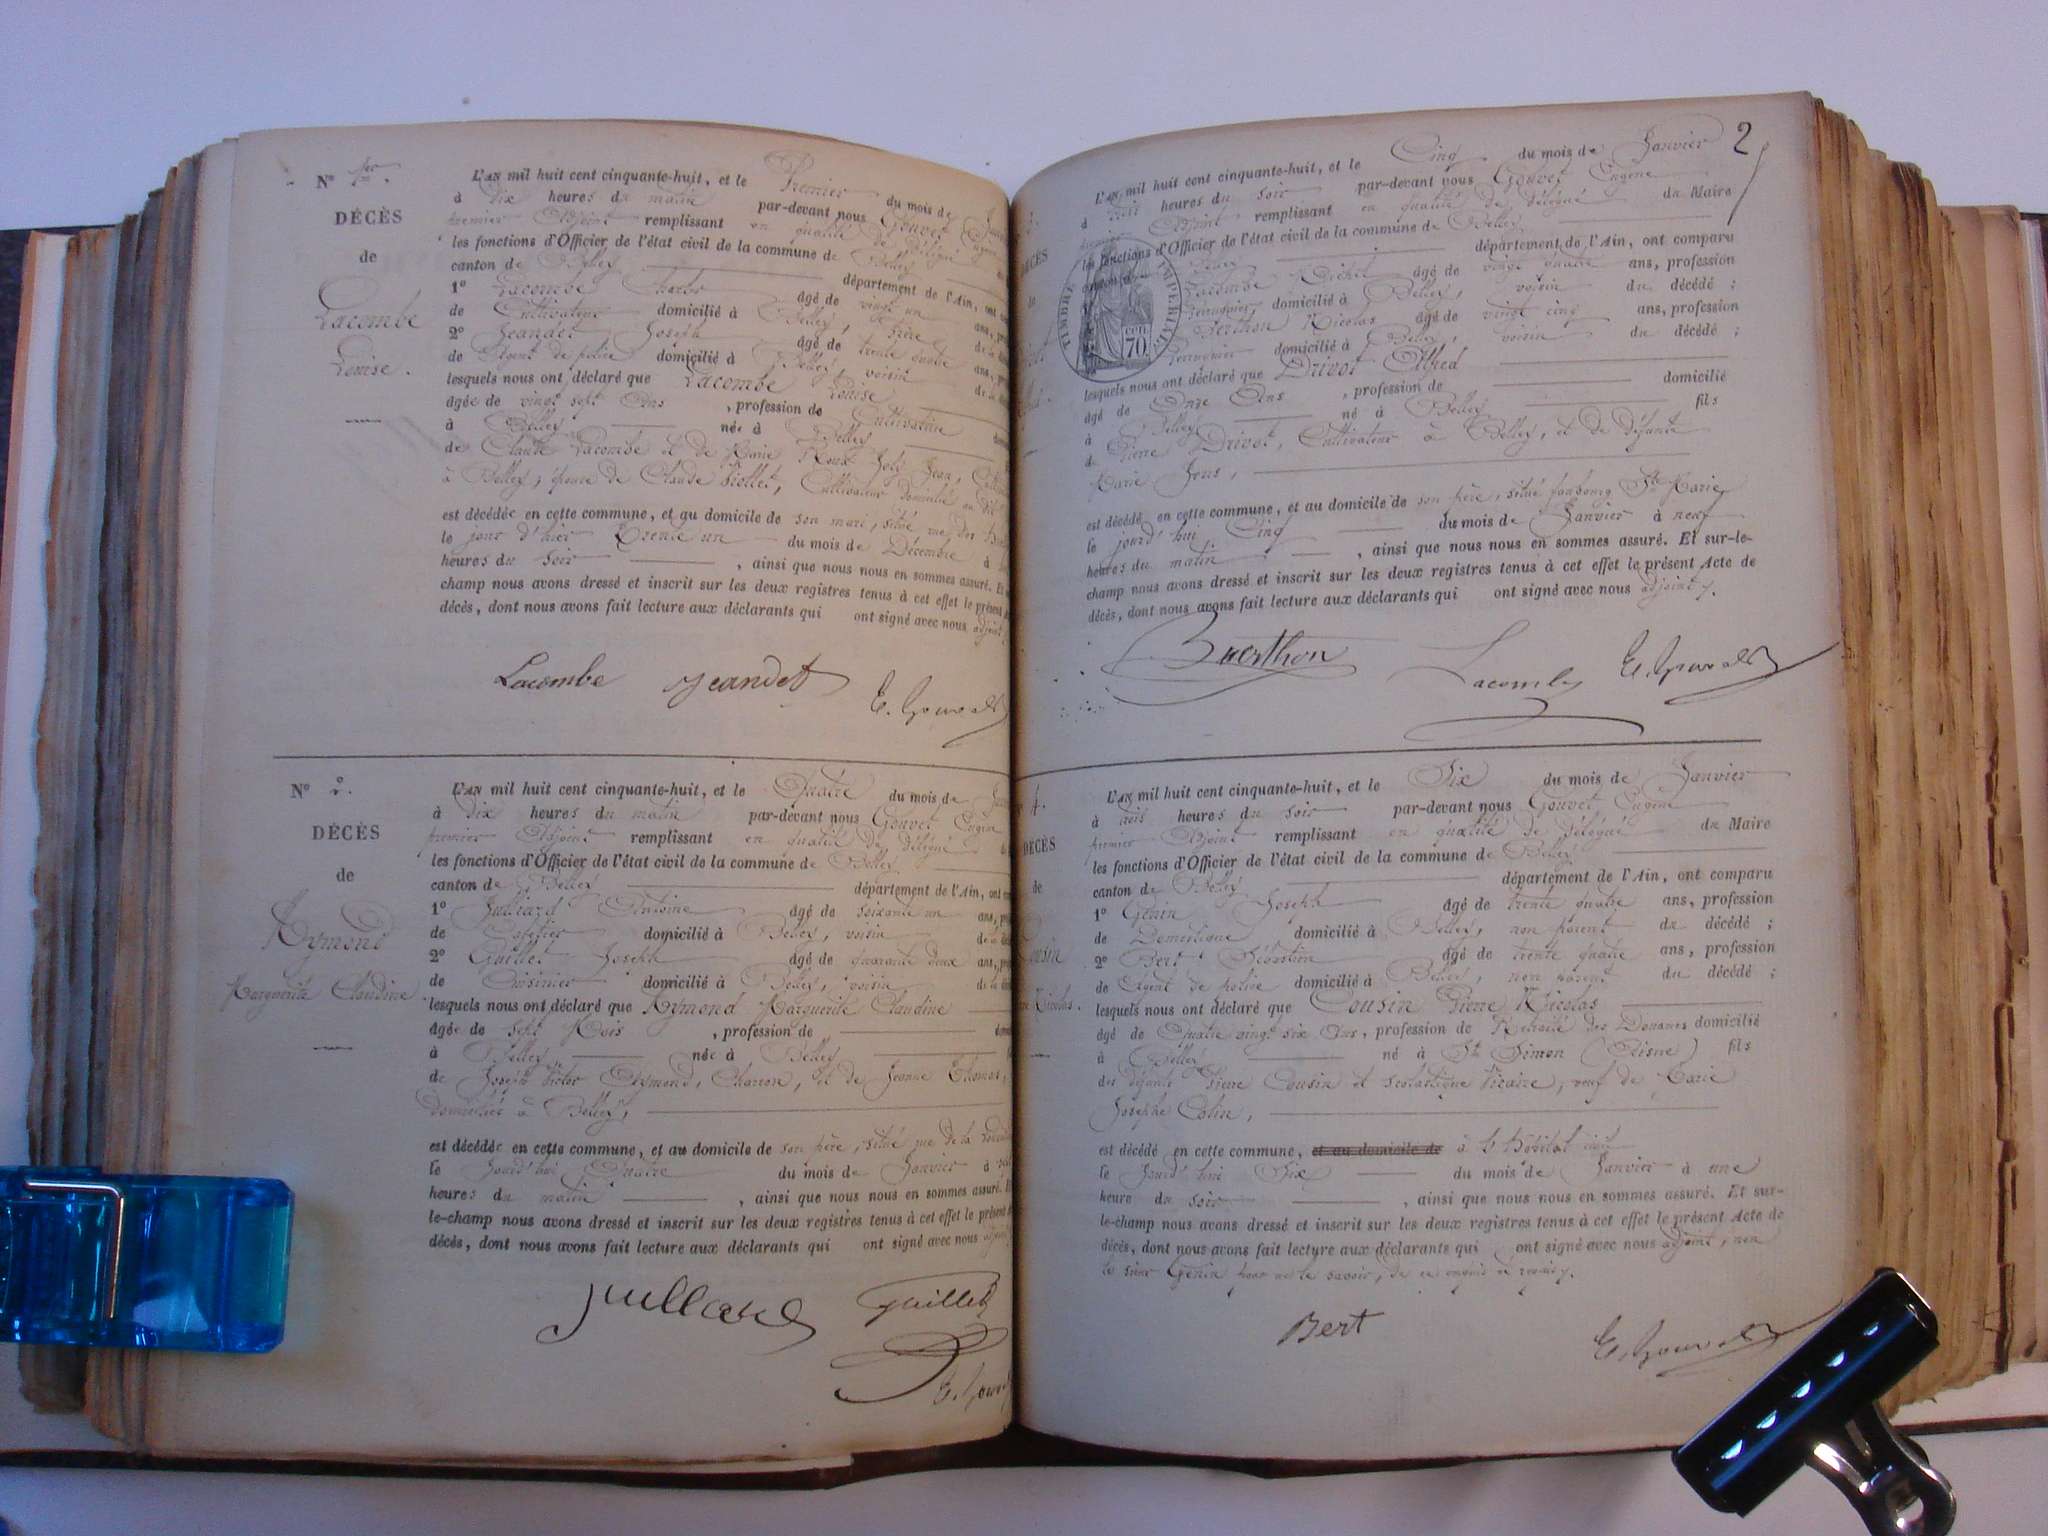 N° 1er
DÉCÈS
de
Lacombe
Louise.
L'AN mil huit cent cinquante-huit, et le Premier du mois de
à Dix heures du matin par-devant nous Gouvet
premier Adjoint remplissant en qualité de Délégué
les fonctions d'Officier de l'état civil de la commune de Belley
canton de Belley département de l'Ain, ont
1° Lacombe Charles âgé de vingt un ans,
de Cultivateur domicilié à Belley, frère
2° Jeandet Joseph âgé de trente quatre ans,
de Agent de police domicilié à Belley, voisin
lesquels nous ont déclaré que Lacombe Louise
âgée de vingt sept Ans , profession de Cultivatrice
à Belley née à Belley
de Claude Lacombe et de Marie
à Belley; épouse de Claude Viollet, Cultivateur domicilié au dit
est décédée en cette commune, et au domicile de son mari, situé rue des
le jour d'hier Trente un du mois de Décembre à
heures du soir , ainsi que nous nous en sommes assuré. Et
champ nous avons dressé et inscrit sur les deux registres tenus à cet effet le présent
décès, dont nous avons fait lecture aux déclarants qui ont signé avec nous adjoint
Lacombe Jeandet E. Gouvet
N° 2.
DÉCÈS
de
Aymond
Marguerite Claudine
L'AN mil huit cent cinquante-huit, et le Quatre du mois de
à Dix heures du matin par-devant nous Gouvet Eugène
premier Adjoint remplissant en qualité de délégué
les fonctions d'Officier de l'état civil de la commune de Belley
canton de Belley département de l'Ain, ont
1° Juillard Antoine âgé de soixante un ans,
de Cafetier domicilié à Belley, voisin
2° Guillet Joseph âgé de quarante deux ans,
de Cuisinier domicilié à Belley, voisin
lesquels nous ont déclaré que Aymond Marguerite Claudine
âgée de sept Mois , profession de
à Belley née à Belley
de Joseph Victor Aymond, Charron, et de Jeanne Thomas,
domiciliés à Belley,
est décédée en cette commune, et au domicile de son père, situé rue de la
le Jourd'hui Quatre du mois de Janvier à
heures du matin , ainsi que nous nous en sommes assuré.
le-champ nous avons dressé et inscrit sur les deux registres tenus à cet effet le présent
décès, dont nous avons fait lecture aux déclarants qui ont signé avec nous adjoint
Juillard Guillet
E. Gouvet
2
L'AN mil huit cent cinquante-huit, et le Cinq du mois de Janvier
à trois heures du soir par-devant nous Gouvet Eugène
premier Adjoint remplissant en qualité de délégué du Maire
les fonctions d'Officier de l'état civil de la commune de Belley
canton de Belley département de l'Ain, ont comparu
Lacombe Michel âgé de vingt quatre ans, profession
domicilié à Belley, voisin du décédé ;
Berthon Nicolas âgé de vingt cinq ans, profession
domicilié à Belley, voisin du décédé ;
TIMBRE IMPÉRIAL
70 cen
lesquels nous ont déclaré que Drivot Alfred
âgé de Onze Ans , profession de domicilié
à Belley né à Belley fils
de Pierre Drivot, Cultivateur à Belley, et de défunte
Marie Jous,
est décédé en cette commune, et au domicile de son père, situé faubourg Ste Marie
le jourd'hui Cinq du mois de Janvier à neuf
heures du matin , ainsi que nous nous en sommes assuré. Et sur-le-
champ nous avons dressé et inscrit sur les deux registres tenus à cet effet le présent Acte de
décès, dont nous avons fait lecture aux déclarants qui ont signé avec nous adjoint
Berthon Lacombe E. Gouvet
4.
DÉCÈS
de
Cousin
Nicolas.
L'AN mil huit cent cinquante-huit, et le Six du mois de Janvier
à trois heures du soir par-devant nous Gouvet Eugène
premier Adjoint remplissant en qualité de délégué du Maire
les fonctions d'Officier de l'état civil de la commune de Belley
canton de Belley département de l'Ain, ont comparu
1° Génin Joseph âgé de trente quatre ans, profession
de Domestique domicilié à Belley, non parent du décédé ;
2° Bert Sébastien âgé de trente quatre ans, profession
de Agent de police domicilié à Belley, non parent du décédé ;
lesquels nous ont déclaré que Cousin Pierre Nicolas
âgé de Quatre vingt six Ans, profession de Retraité des Douanes domicilié
à Belley né à St Simon (Aisne) fils
des défunts Pierre Cousin et Scolastique Vicaire, veuf de Marie
Josephe Colin,
est décédé en cette commune, et au domicile de à l'hôpital civil
le Jourd'hui Six du mois de Janvier à une
heure du soir , ainsi que nous nous en sommes assuré. Et sur-
le-champ nous avons dressé et inscrit sur les deux registres tenus à cet effet le présent Acte de
décès, dont nous avons fait lecture aux déclarants qui ont signé avec nous adjoint, non
le sieur Génin pour ne le savoir, de ce enquis et requis
Bert E. Gouvet